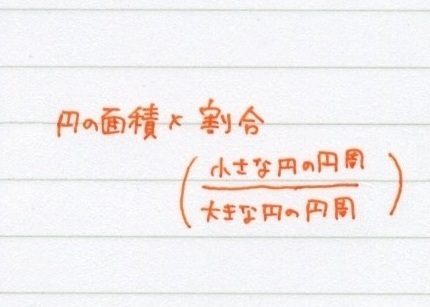 円の面積 × 割合
(小さな円の円周
大きな円の円周)